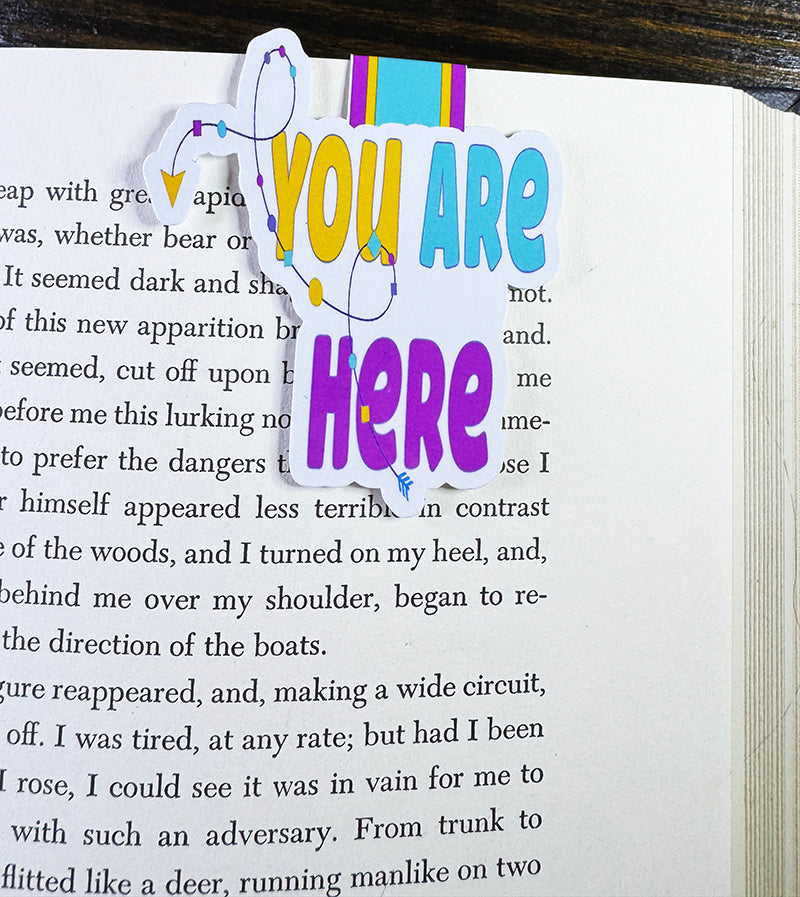 YOU ARE
HERE
eap with
was, whether bear or
It seemed dark and not.
of this new apparition and.
seemed, cut off upon me
before me this lurking me-
to prefer the dangers I
himself appeared less terrible in contrast
of the woods, and I turned on my heel, and,
behind me over my shoulder, began to re-
the direction of the boats.
gure reappeared, and, making a wide circuit,
off. I was tired, at any rate; but had I been
I rose, I could see it was in vain for me to
with such an adversary. From trunk to
flitted like a deer, running manlike on two